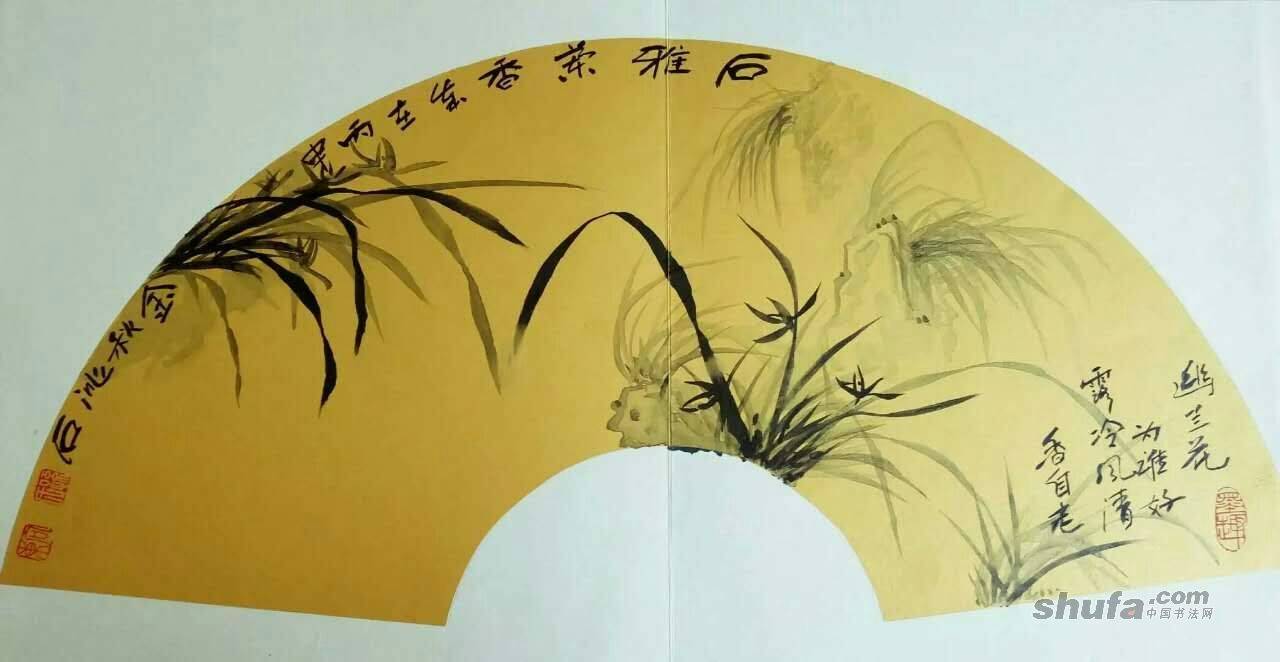 石雅蘭香岁在丙申
金秋石
幽兰花
为谁好
露冷风清
香自老
shufa.com
中国书法网